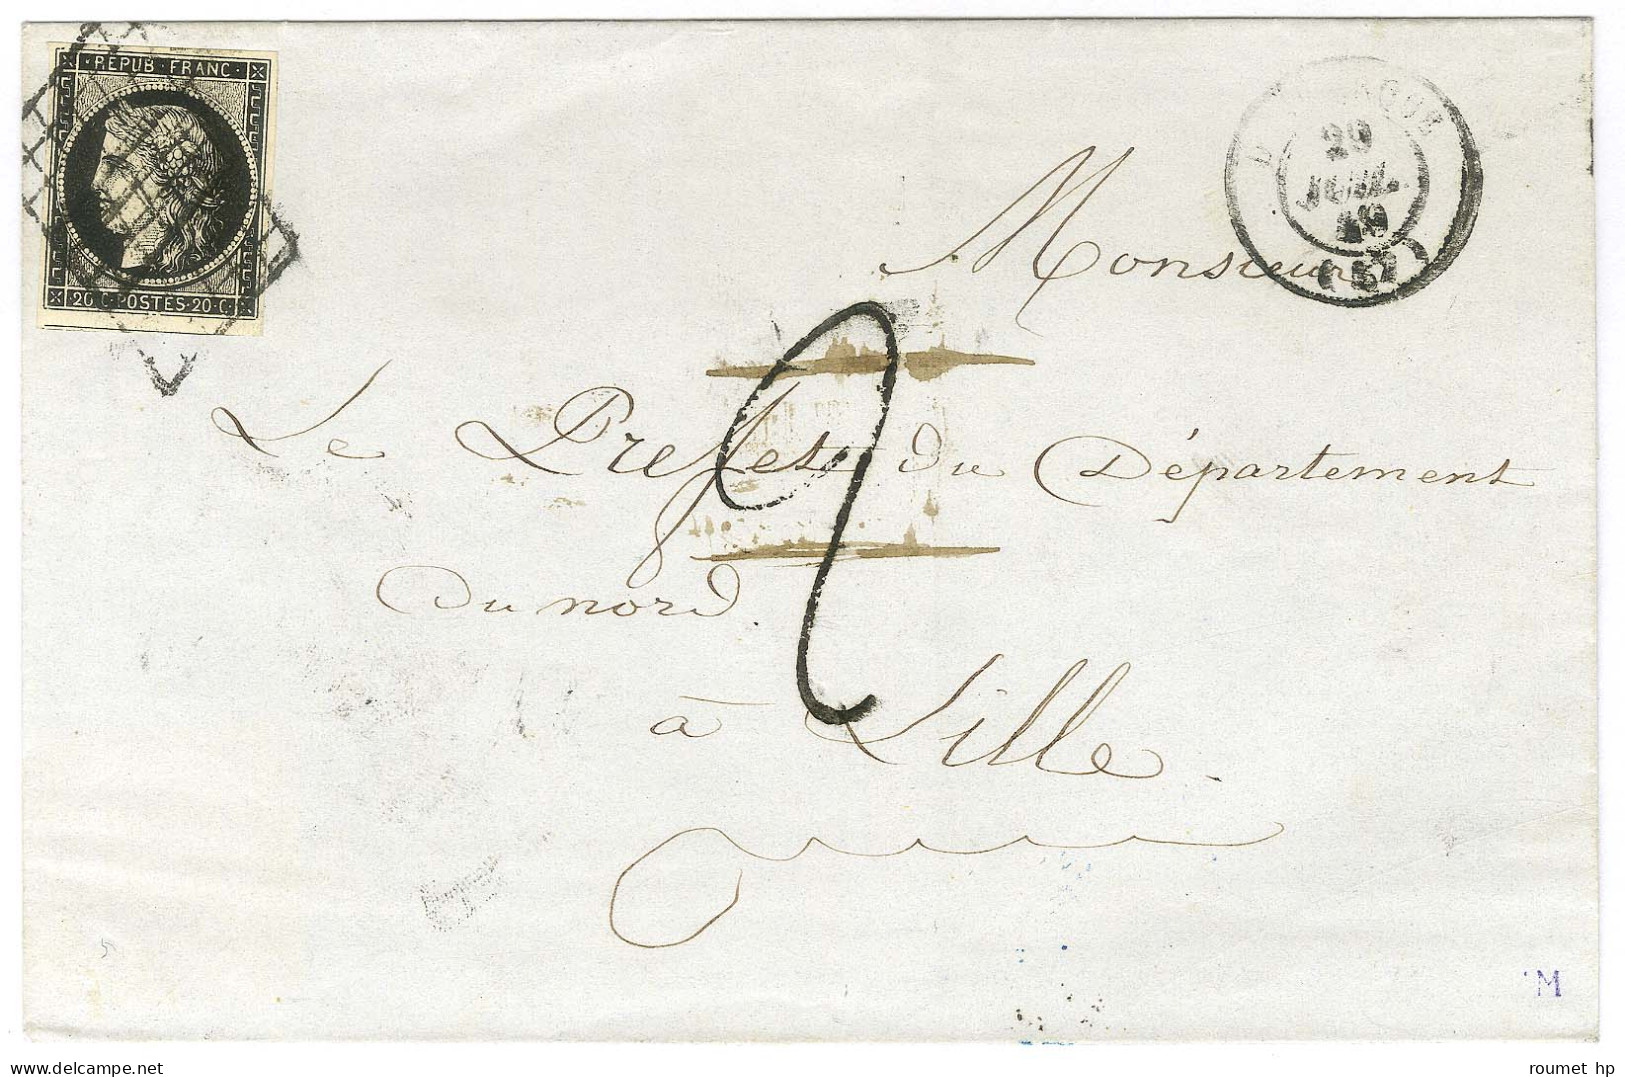 · REPUB · FRANC ·
20 · C · POSTES · 20 · C ·
20
JUIL.
49
(57)
Monsieur
Le Prefet du Département
Du nord.
à Lille.
2
M
delcampe.net
roumet hp